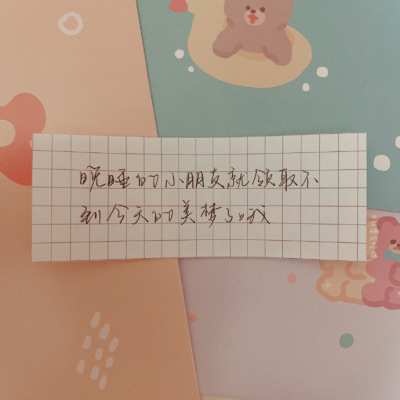 晚睡的小朋友就领取不
到今天的美梦了哦